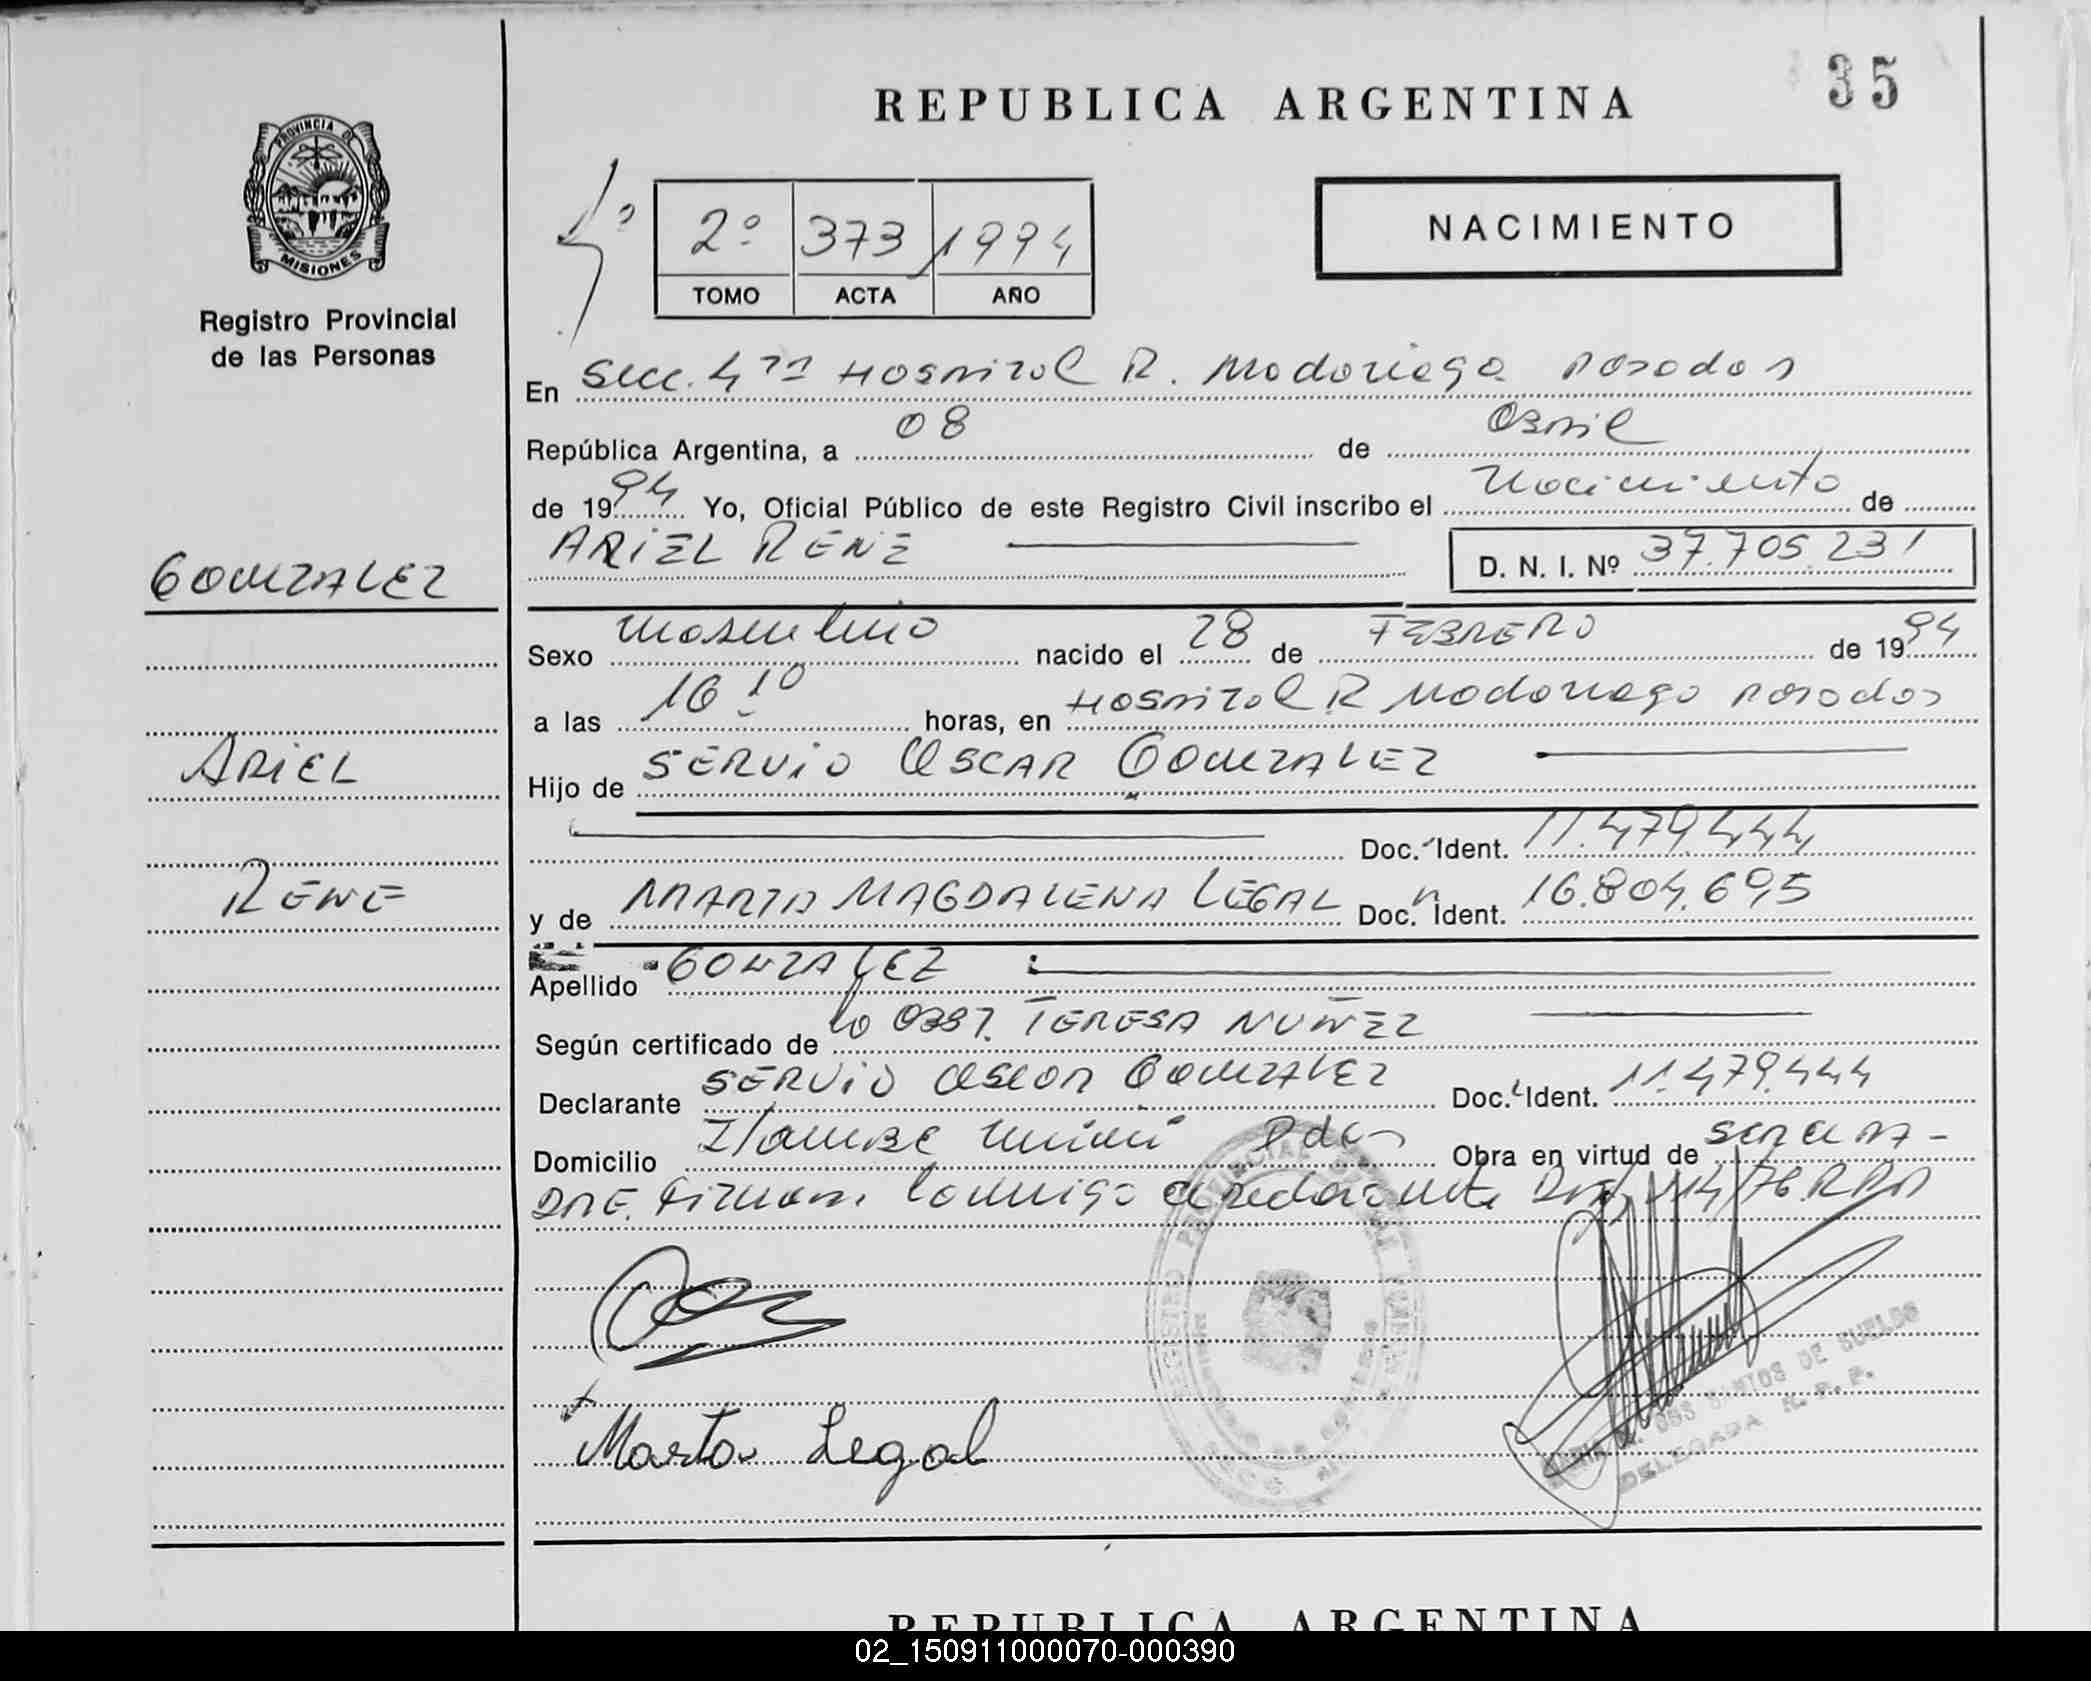 35
REPUBLICA ARGENTINA
PROVINCIA DE
MISIONES
Registro Provincial
de las Personas
2º 373 1994
TOMO ACTA AÑO
NACIMIENTO
En Secc. 4ta Hospital R. Madariaga Posadas
República Argentina, a 08 de Abril
de 1994 Yo, Oficial Público de este Registro Civil inscribo el Nacimiento de
ARIEL RENE
D. N. I. Nº 37.705.231
GONZALEZ
ARIEL
RENE
Sexo masculino nacido el 28 de FEBRERO de 1994
a las 16 10 horas, en Hospital R Madariaga Posadas
Hijo de SERVIO OSCAR GONZALEZ
Doc. Ident. 11.479.444
y de MARTA MAGDALENA LEGAL Doc. Ident. 16.804.695
Apellido GONZALEZ
Según certificado de la Obst. TERESA NUÑEZ
Declarante SERVIO Oscar GONZALEZ Doc. Ident. 11.479.444
Domicilio Pdas Obra en virtud de ser el PA-
DRE. Firman Conmigo
Marta Legal
DELEGADA R. P. P.
REPUBLICA ARGENTINA
02_150911000070-000390